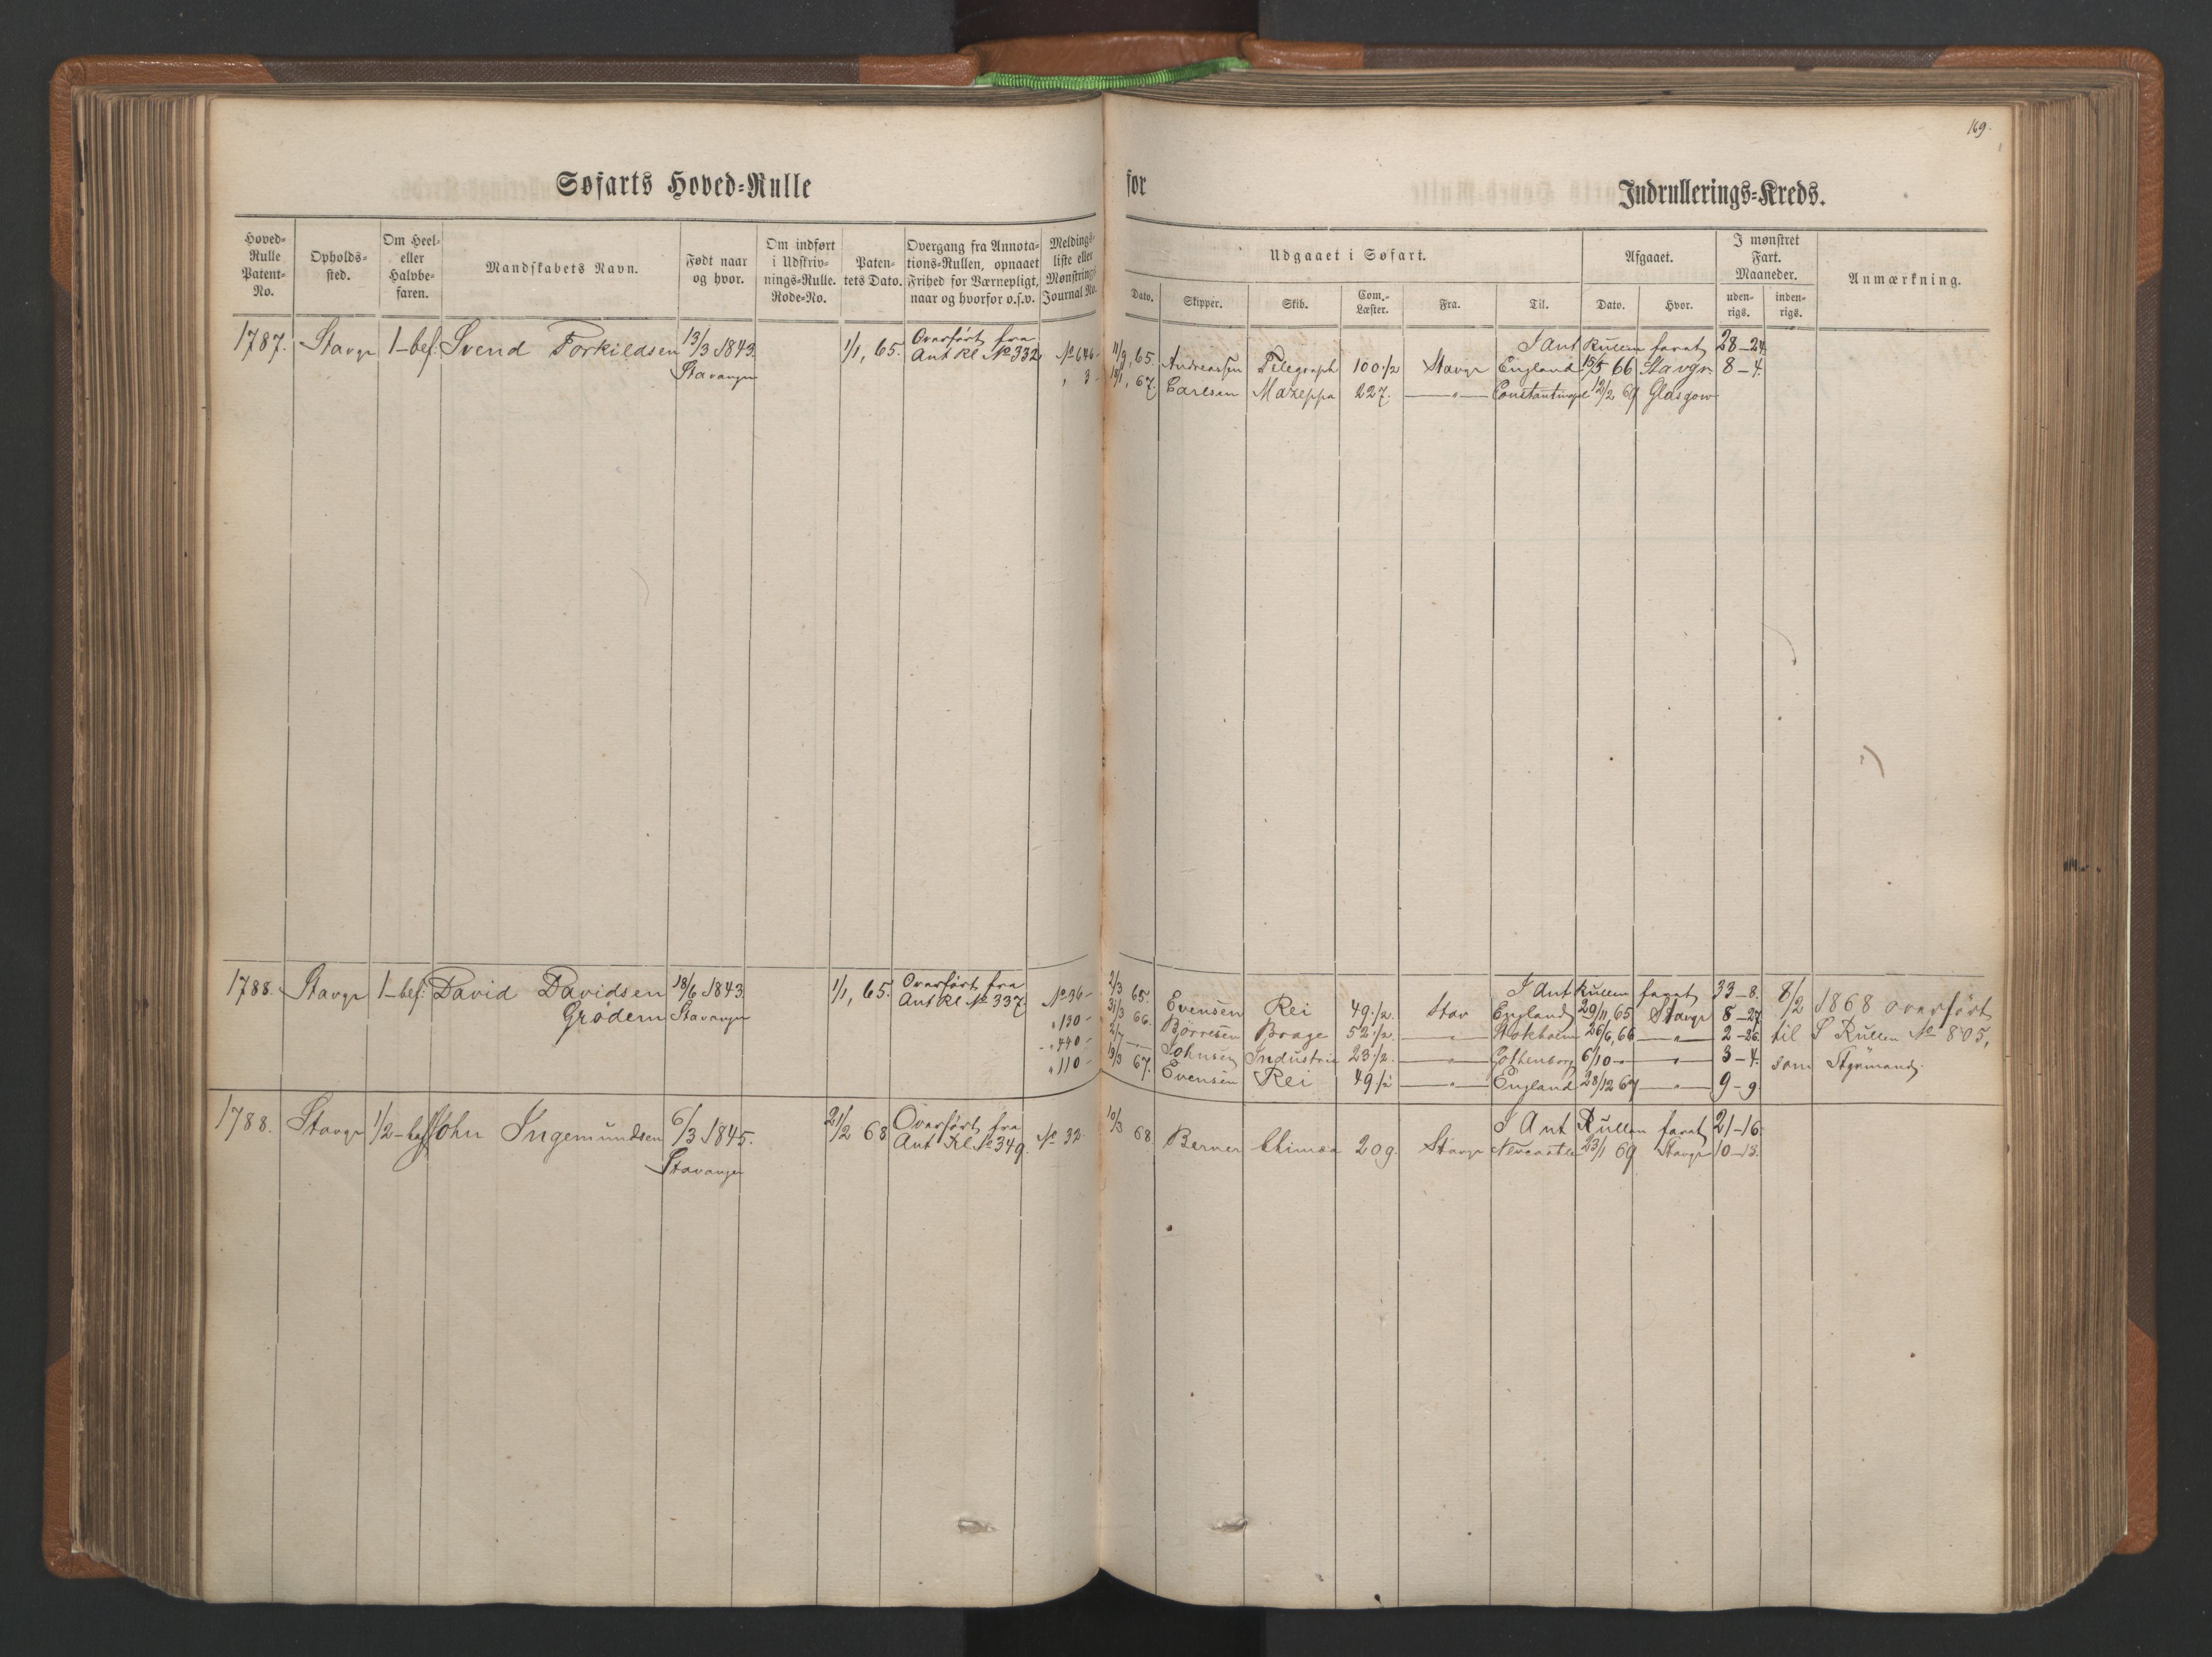 169.
Søfarts Hoved-Rulle for Indrullerings-Kreds.
Hoved-Rulle Patent-No.
Opholds-sted.
Om Heel- eller Halvbe-faren.
Mandskabets Navn.
Født naar og hvor.
Om indført i Udskriv-nings-Rulle. Rode-No.
Paten-tets Dato.
Overgang fra Annota-tions-Rullen, opnaaet Frihed for Værnepligt, naar og hvorfor o.s.v.
Meldings-liste eller Mønstrings Journal No.
Udgaaet i Søfart.
Dato. Skipper. Skib. Com.-Læster. Fra. Til.
Afgaaet.
Dato. Hvor.
I mønstret Fart. Maaneder.
uden-rigs. inden-rigs.
Anmærkning.
1787. Stavgr 1-bef. Svend Torkildsen 13/3 1843. 1/1, 65. Overført fra I Ant Rullen farat 28-24.
Stavanger Ant Rl No 332 No 646- 11/9, 65. Andreassen Telegraph 100 1/2 Stavgr England 15/5 66 Stavgr. 8-4.
" 3- 18/1, 67. Carlsen Mazeppa 227. —"— Constantinopel 12/2 69 Glasgow
1788. Stavgr 1-bef. David Davidsen 18/6 1843. 1/1, 65. Overført fra I Ant Rullen farat 33-8. 8/2 1868 overført
Grödem Stavanger Ant Rl No 337 No 36- 2/3 65. Evensen Rei 49 1/2. Stav England 29/11, 65 Stavgr 8-27 til S Rullen No 805,
" 130- 31/3 66. Börresen Brage 52 1/2. —"— Stokholm 26/6, 66 —"— 2-26. som Styrmand.
" 440- 2/7 —"— Johnsen Industrie 23 1/2. —"— Gothenborg 6/10 —"— 3-4.
" 110- 19/3 67. Evensen Rei 49 1/2 —"— England 28/12 67 —"— 9-9
1788. Stavgr 1/2-bef John Ingemundsen 6/3 1845. 21/2 68 Overført fra I Ant Rullen farat 21-16.
Stavanger Ant Rl No 349. No 32- 10/3 68. Berner 209. Stavgr Newcastle 23/1 69 Stavgr 10-13.